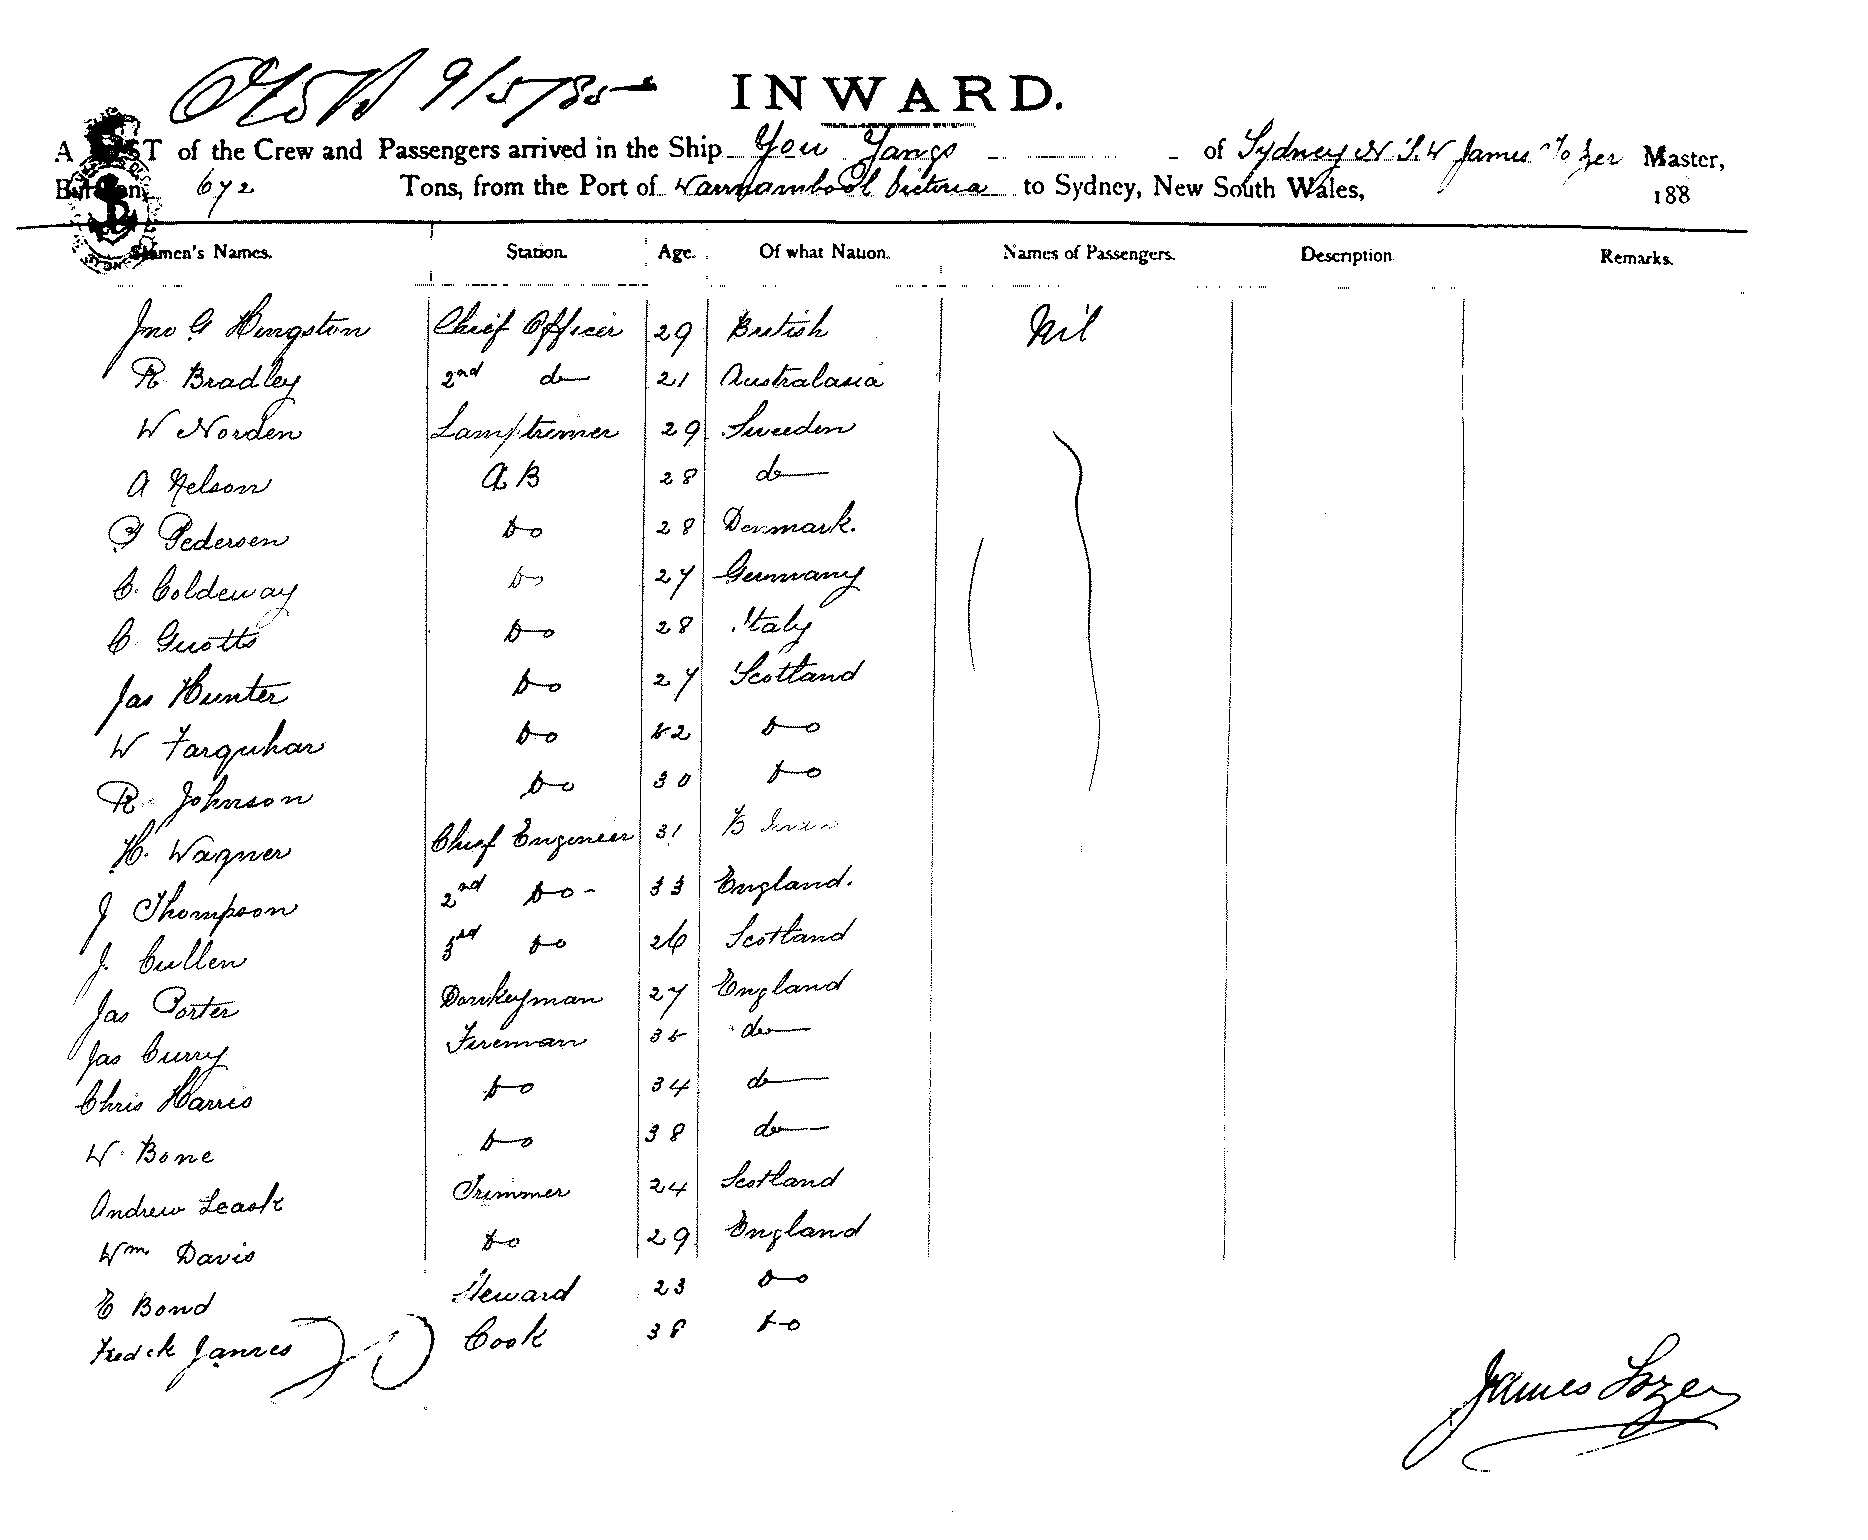 9/5/85 INWARD.
A LIST of the Crew and Passengers arrived in the Ship You Yangs of Sydney N.S.W James Tozer Master,
Burthen, 672 Tons, from the Port of Warrnambool Victoria to Sydney, New South Wales, 188
Seamen's Names. Station. Age. Of what Nation. Names of Passengers. Description Remarks.
Jno G Hingston Chief Officer 29 British Nil
R Bradley 2nd do 21 Australasia
W Norden Lamptrimer 29 Sweeden
A Nelson A B 28 do
P Pedersen Do 28 Denmark.
C. Coldeway Do 27 Germany
C Guotto Do 28 Italy
Jas Hunter Do 27 Scotland
W Farquhar Do 52 Do
R. Johnson Do 30 Do
H. Wagner Chief Engineer 31 B
J Thompson 2nd Do - 33 England.
J. Cullen 3rd Do 26 Scotland
Jas Porter Donkeyman 27 England
Jas Curry Fireman 35 do
Chris Harris Do 34 do
W. Bone Do 38 do
Andrew Leask Trimmer 24 Scotland
Wm Davis Do 29 England
E Bond Steward 23 Do
Fredck Janves Cook 38 Do
James Tozer